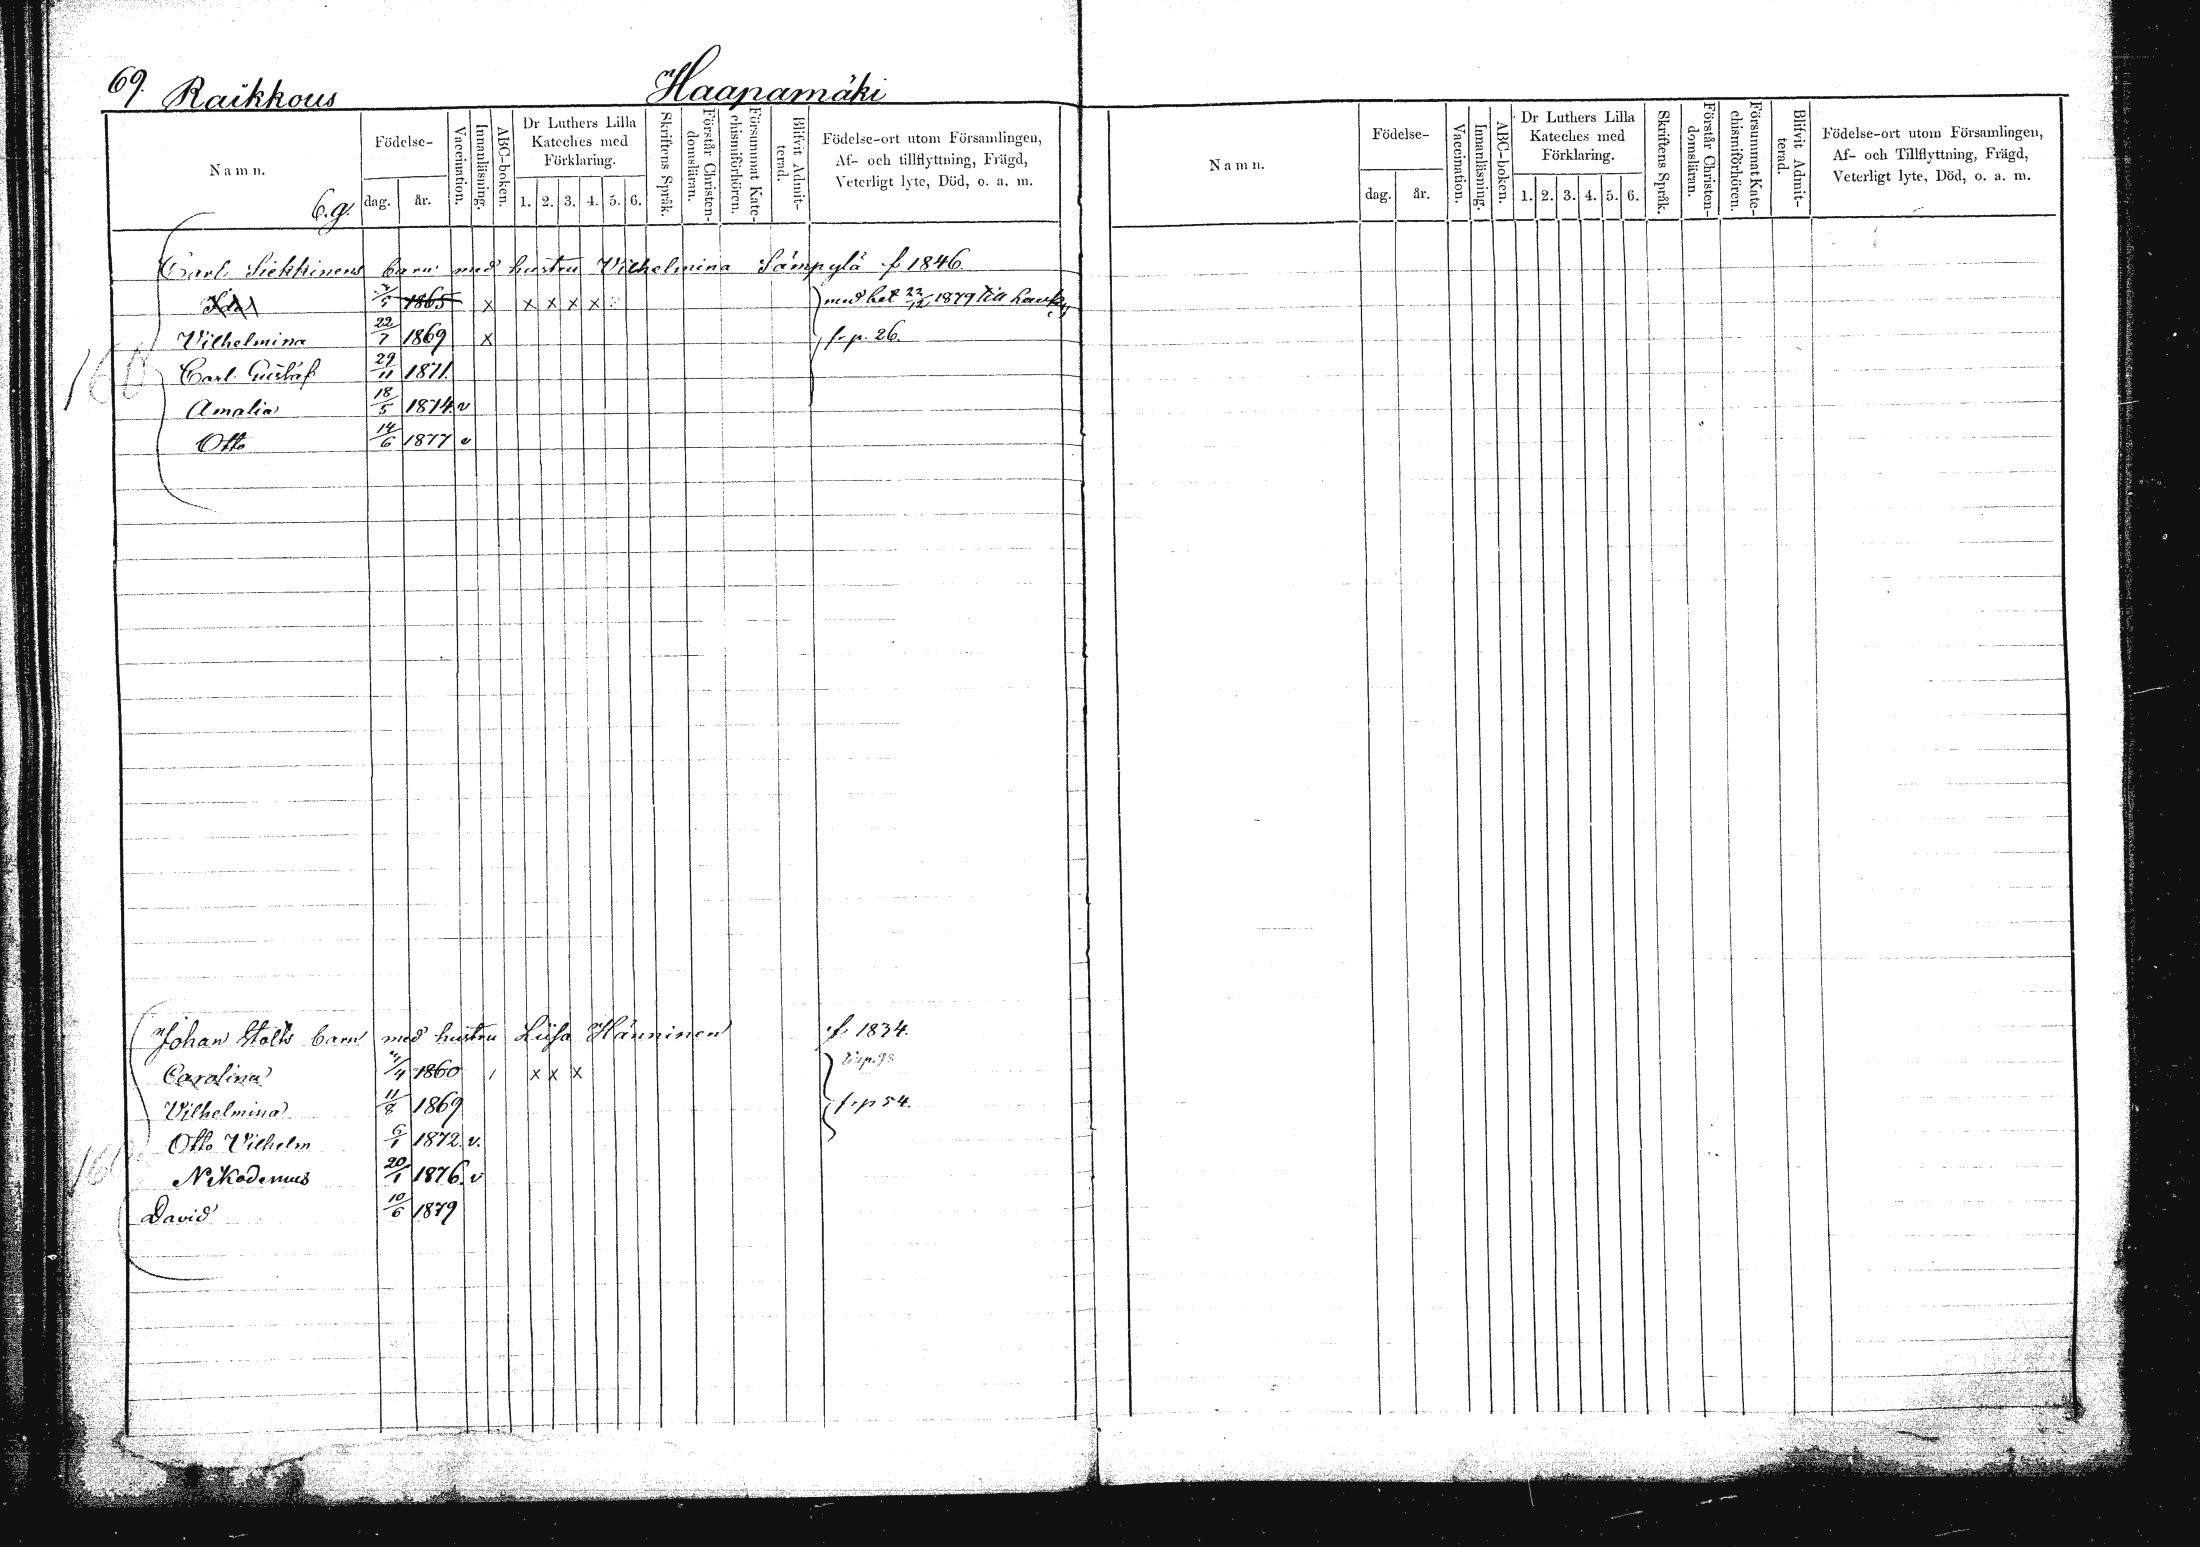 69. Raikkous Haapamäki
Namn. Födelse- dag. år. Vaccination. Innanläsning. ABC-boken. Dr Luthers Lilla Kateches med Förklaring. 1. 2. 3. 4. 5. 6. Skriftens Språk. Förstår Christendomsläran. Försummat Katechismiförhören. Blifvit Admitterad. Födelse-ort utom Församlingen, Af- och tillflyttning, Frägd, Veterligt lyte, Död, o. a. m.
Namn. Födelse- dag. år. Vaccination. Innanläsning. ABC-boken. Dr Luthers Lilla Kateches med Förklaring. 1. 2. 3. 4. 5. 6. Skriftens Språk. Förstår Christendomsläran. Försummat Katechismiförhören. Blifvit Admitterad. Födelse-ort utom Församlingen, Af- och Tillflyttning, Frägd, Veterligt lyte, Död, o. a. m.
6.g.
Carl Siekkinens barn med hustru Vilhelmina Sämpylä f 1846.
Ida 1865 x x x x x med bet 22/12 1879 till
Vilhelmina 22/7 1869 x fr p. 26.
Carl Gustaf 29/11 1871.
Amalia 18/5 1874 v
Otto 14/6 1877 v
160
Johan Stolts barn med hustru Liisa Hänninen f. 1834.
Carolina 1860 x x x
Vilhelmina 11/8 1869 fr p 54.
Otto Vilhelm 6/1 1872. v.
Nikodemus 20/1 1876. v
David 10/6 1879